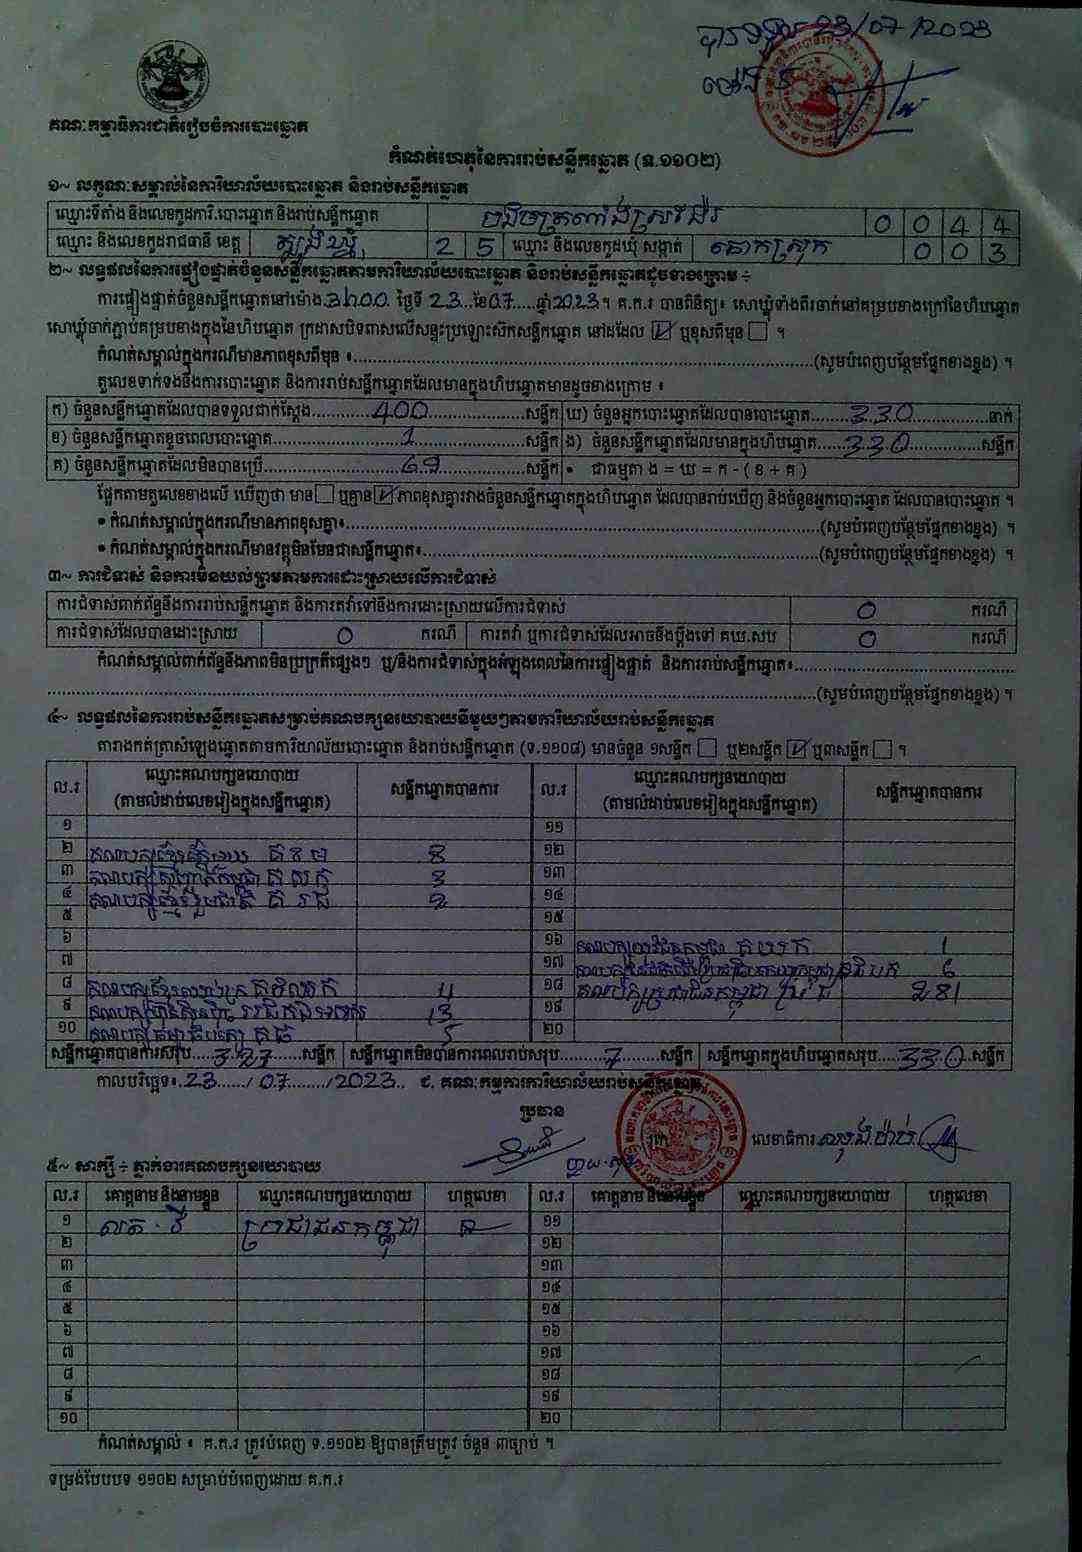 បានទទួល 23/07/2023
ម៉ោង
គណៈកម្មាធិការជាតិរៀបចំការបោះឆ្នោត
កំណត់ហេតុនៃការរាប់សន្លឹកឆ្នោត (ទ.១១០២)
១~ លក្ខណៈសម្គាល់នៃការិយាល័យបោះឆ្នោត និងរាប់សន្លឹកឆ្នោត
ឈ្មោះទីតាំង និងលេខកូដការិ.បោះឆ្នោត និងរាប់សន្លឹកឆ្នោត 0 0 4 4
ឈ្មោះ និងលេខកូដរាជធានី ខេត្ត ត្បូងឃ្មុំ 2 5 ឈ្មោះ និងលេខកូដឃុំ សង្កាត់ គោកស្រុក 0 0 3
២~ លទ្ធផលនៃការផ្ទៀងផ្ទាត់ចំនួនសន្លឹកឆ្នោតតាមការិយាល័យបោះឆ្នោត និងរាប់សន្លឹកឆ្នោតដូចខាងក្រោម ÷
ការផ្ទៀងផ្ទាត់ចំនួនសន្លឹកឆ្នោតនៅម៉ោង 3h00 ថ្ងៃទី 23 ខែ 07 ឆ្នាំ 2023 ។ គ.ក.រ បានពិនិត្យ៖ សោឃ្លុំទាំងពីរចាក់នៅគម្របខាងក្រៅនៃហិបឆ្នោត
សោឃ្លុំចាក់ភ្ជាប់គម្របខាងក្នុងនៃហិបឆ្នោត ក្រដាសបិទពាសលើសន្ទះប្រឡោះស៊កសន្លឹកឆ្នោត នៅដដែល ☑ ឬខុសពីមុន ☐ ។
កំណត់សម្គាល់ក្នុងករណីមានភាពខុសពីមុន ៖..........(សូមបំពេញបន្ថែមផ្នែកខាងខ្នង) ។
តួលេខទាក់ទងនឹងការបោះឆ្នោត និងការរាប់សន្លឹកឆ្នោតដែលមានក្នុងហិបឆ្នោតមានដូចខាងក្រោម ៖
ក) ចំនួនសន្លឹកឆ្នោតដែលបានទទួលជាក់ស្តែង 400 សន្លឹក ឃ) ចំនួនអ្នកបោះឆ្នោតដែលបានបោះឆ្នោត 330 នាក់
ខ) ចំនួនសន្លឹកឆ្នោតខូចពេលបោះឆ្នោត 1 សន្លឹក ង) ចំនួនសន្លឹកឆ្នោតដែលមានក្នុងហិបឆ្នោត 330 សន្លឹក
គ) ចំនួនសន្លឹកឆ្នោតដែលមិនបានប្រើ 69 សន្លឹក • ជាធម្មតា ង = ឃ = ក - ( ខ + គ )
ផ្អែកតាមតួលេខខាងលើ ឃើញថា មាន ☐ ឬគ្មាន ☑ ភាពខុសគ្នារវាងចំនួនសន្លឹកឆ្នោតក្នុងហិបឆ្នោត ដែលបានរាប់ឃើញ និងចំនួនអ្នកបោះឆ្នោត ដែលបានបោះឆ្នោត ។
• កំណត់សម្គាល់ក្នុងករណីមានភាពខុសគ្នា៖..........(សូមបំពេញបន្ថែមផ្នែកខាងខ្នង) ។
• កំណត់សម្គាល់ក្នុងករណីមានវត្ថុមិនមែនជាសន្លឹកឆ្នោត៖..........(សូមបំពេញបន្ថែមផ្នែកខាងខ្នង) ។
៣~ ការជំទាស់ និងការមិនយល់ព្រមតាមការដោះស្រាយលើការជំទាស់
ការជំទាស់ពាក់ព័ន្ធនឹងការរាប់សន្លឹកឆ្នោត និងការតវ៉ាទៅនឹងការដោះស្រាយលើការជំទាស់ 0 ករណី
ការជំទាស់ដែលបានដោះស្រាយ 0 ករណី ការតវ៉ា ឬការជំទាស់ដែលអាចនឹងប្តឹងទៅ គឃ.សប 0 ករណី
កំណត់សម្គាល់ពាក់ព័ន្ធនឹងភាពមិនប្រក្រតីផ្សេងៗ ឬ/និងការជំទាស់ក្នុងអំឡុងពេលនៃការផ្ទៀងផ្ទាត់ និងការរាប់សន្លឹកឆ្នោត៖..........
..........(សូមបំពេញបន្ថែមផ្នែកខាងខ្នង) ។
៤~ លទ្ធផលនៃការរាប់សន្លឹកឆ្នោតសម្រាប់គណបក្សនយោបាយនីមួយៗតាមការិយាល័យរាប់សន្លឹកឆ្នោត
តារាងកត់ត្រាសំឡេងឆ្នោតតាមការិយាល័យបោះឆ្នោត និងរាប់សន្លឹកឆ្នោត (ទ.១១០៨) មានចំនួន ១សន្លឹក ☐ ឬ២សន្លឹក ☑ ឬ៣សន្លឹក ☐ ។
ល.រ ឈ្មោះគណបក្សនយោបាយ (តាមលំដាប់លេខរៀងក្នុងសន្លឹកឆ្នោត) សន្លឹកឆ្នោតបានការ ល.រ ឈ្មោះគណបក្សនយោបាយ (តាមលំដាប់លេខរៀងក្នុងសន្លឹកឆ្នោត) សន្លឹកឆ្នោតបានការ
១ ១១
២ 8 ១២
៣ 3 ១៣
៤ គណបក្សខ្មែររួបរួមជាតិ គ រ ជ 2 ១៤
៥ ១៥
៦ ១៦ គណបក្សយុវជនកម្ពុជា គ យ ក 1
៧ ១៧ 6
៨ 4 ១៨ គណបក្សប្រជាជនកម្ពុជា ប្រ ជ 281
៩ 13 ១៩
១០ គណបក្សធម្មាធិបតេយ្យ គ ធ 5 ២០
សន្លឹកឆ្នោតបានការសរុប 323 សន្លឹក សន្លឹកឆ្នោតមិនបានការពេលរាប់សរុប 7 សន្លឹក សន្លឹកឆ្នោតក្នុងហិបឆ្នោតសរុប 330 សន្លឹក
កាលបរិច្ឆេទ៖ 23 / 07 / 2023 ជ. គណៈកម្មការការិយាល័យរាប់សន្លឹកឆ្នោត
ប្រធាន
លេខាធិការ
៥~ សាក្សី ÷ ភ្នាក់ងារគណបក្សនយោបាយ
ល.រ គោត្តនាម និងនាមខ្លួន ឈ្មោះគណបក្សនយោបាយ ហត្ថលេខា ល.រ គោត្តនាម និងនាមខ្លួន ឈ្មោះគណបក្សនយោបាយ ហត្ថលេខា
១ ប្រជាជនកម្ពុជា ១១
២ ១២
៣ ១៣
៤ ១៤
៥ ១៥
៦ ១៦
៧ ១៧
៨ ១៨
៩ ១៩
១០ ២០
កំណត់សម្គាល់ ៖ គ.ក.រ ត្រូវបំពេញ ទ.១១០២ ឱ្យបានត្រឹមត្រូវ ចំនួន ៣ច្បាប់ ។
ទម្រង់បែបបទ ១១០២ សម្រាប់បំពេញដោយ គ.ក.រ